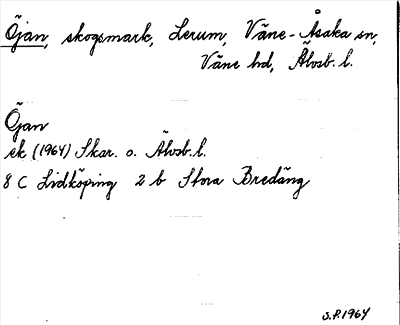 Öjan, skogsmark, Lerum, Väne-Åsaka sn,
Väne hd, Älvsb. l.
Öjan
ek (1964) Skar. o. Älvsb. l.
8 C Lidköping 2 b Stora Bredäng
S.P. 1964